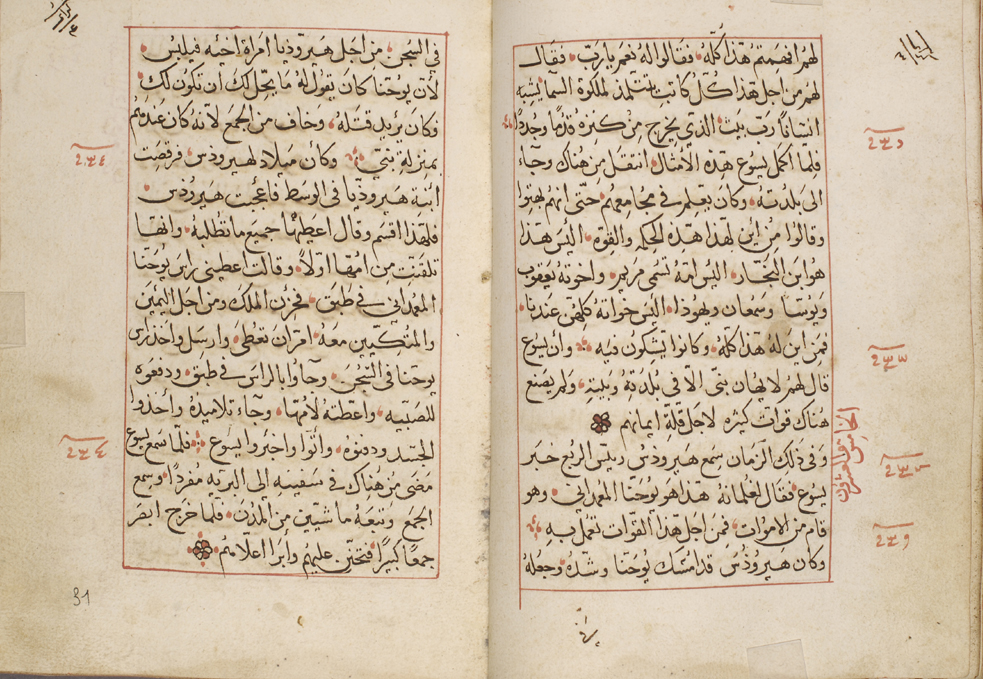 لهم افهمتم هذا كله فقالوا له نعم يا رب فقال
لهم من اجل هذا كل كاتب يتتلمذ لملكوة السما يشبه
انسانا رب بيت الذي يخرج من كنزه قدما وجددا
فلما اكمل يسوع هذه الامثال انتقل من هناك وجاء
الى بلدته وكان يعلم في مجامعهم حتى انهم بهتوا
وقالوا من اين لهذا هذه الحكمه والقوه اليس هذا
هو ابن النجار اليس امه تسمى مريم واخوته يعقوب
ويوسا وسمعان ويهوذا اليس خواته كلهن عندنا
فمن اين له هذا كله وكانوا يشكون فيه وان يسوع
قال لهم لا يهان نبي الا في بلدته وبيته ولم يصنع
هناك قوات كثيره لاجل قلة ايمانهم
وفي ذلك الزمان سمع هيرودس رييس الربع خبر
يسوع فقال لغلمانه هذا هو يوحنا المعمداني وهو
قام من الاموات فمن اجل هذا القوات تعمل به
وكان هيرودس قد امسك يوحنا وشده وجعله
في السجن من اجل هيروذيا امراة اخيه فيلبس
لان يوحنا كان يقول له ما يحل لك ان تكون لك
وكان يريد قتله وخاف من الجمع لانه كان عندهم
بمنزلة نبي وكان ميلاد لهيرودس فرقصت
ابنة هيروذيا في الوسط فاعجبت هيرودس
فلهذا اقسم وقال اعطيها جميع ما تطلبه وانها
تلقنت من امها اولا وقالت اعطيني راس يوحنا
المعمداني في طبق فحزن الملك ومن اجل اليمين
والمتكيين معه امر ان تعطى وارسل واخذ راس
يوحنا في السجن وجاوا بالراس في طبق ودفعوه
للصبيه واعطته لامها وجاء تلاميذه واخذوا
الجسد ودفنوه واتوا واخبروا يسوع فلما سمع يسوع
مضى من هناك في سفينه الى البريه مفردا وسمع
الجمع وتبعه ماشيين من المدن فلما خرج ابصر
جمعا كبيرا فتحنن عليهم وابرا اعلامهم
31